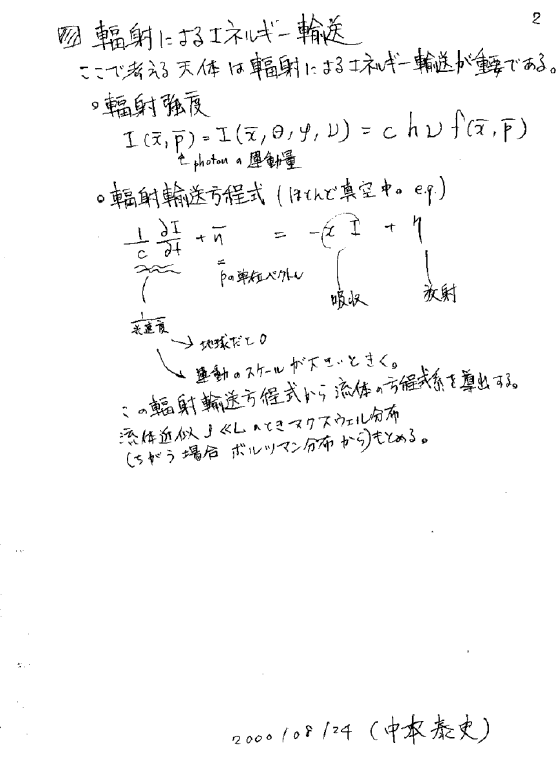 2
輻射によるエネルギー輸送
ここで考える天体は輻射によるエネルギー輸送が重要である。
○輻射強度
I(x̄, p̄) = I(x̄, θ, φ, ν) = c h ν f(x̄, p̄)
↑photonの運動量
○輻射輸送方程式 (ほとんど真空中。e.g.)
1/c ∂I/∂t + n̄ = -χ I + η
pの単位ベクトル
吸収 放射
1/光速度
→地球だと0
運動のスケールが大きいときく。
この輻射輸送方程式から流体の方程式系を導出する。
流体近似 l ≪ L のときマクスウェル分布
(ちがう場合 ボルツマン分布から)もとめる。
2000/08/24 (中本泰史)